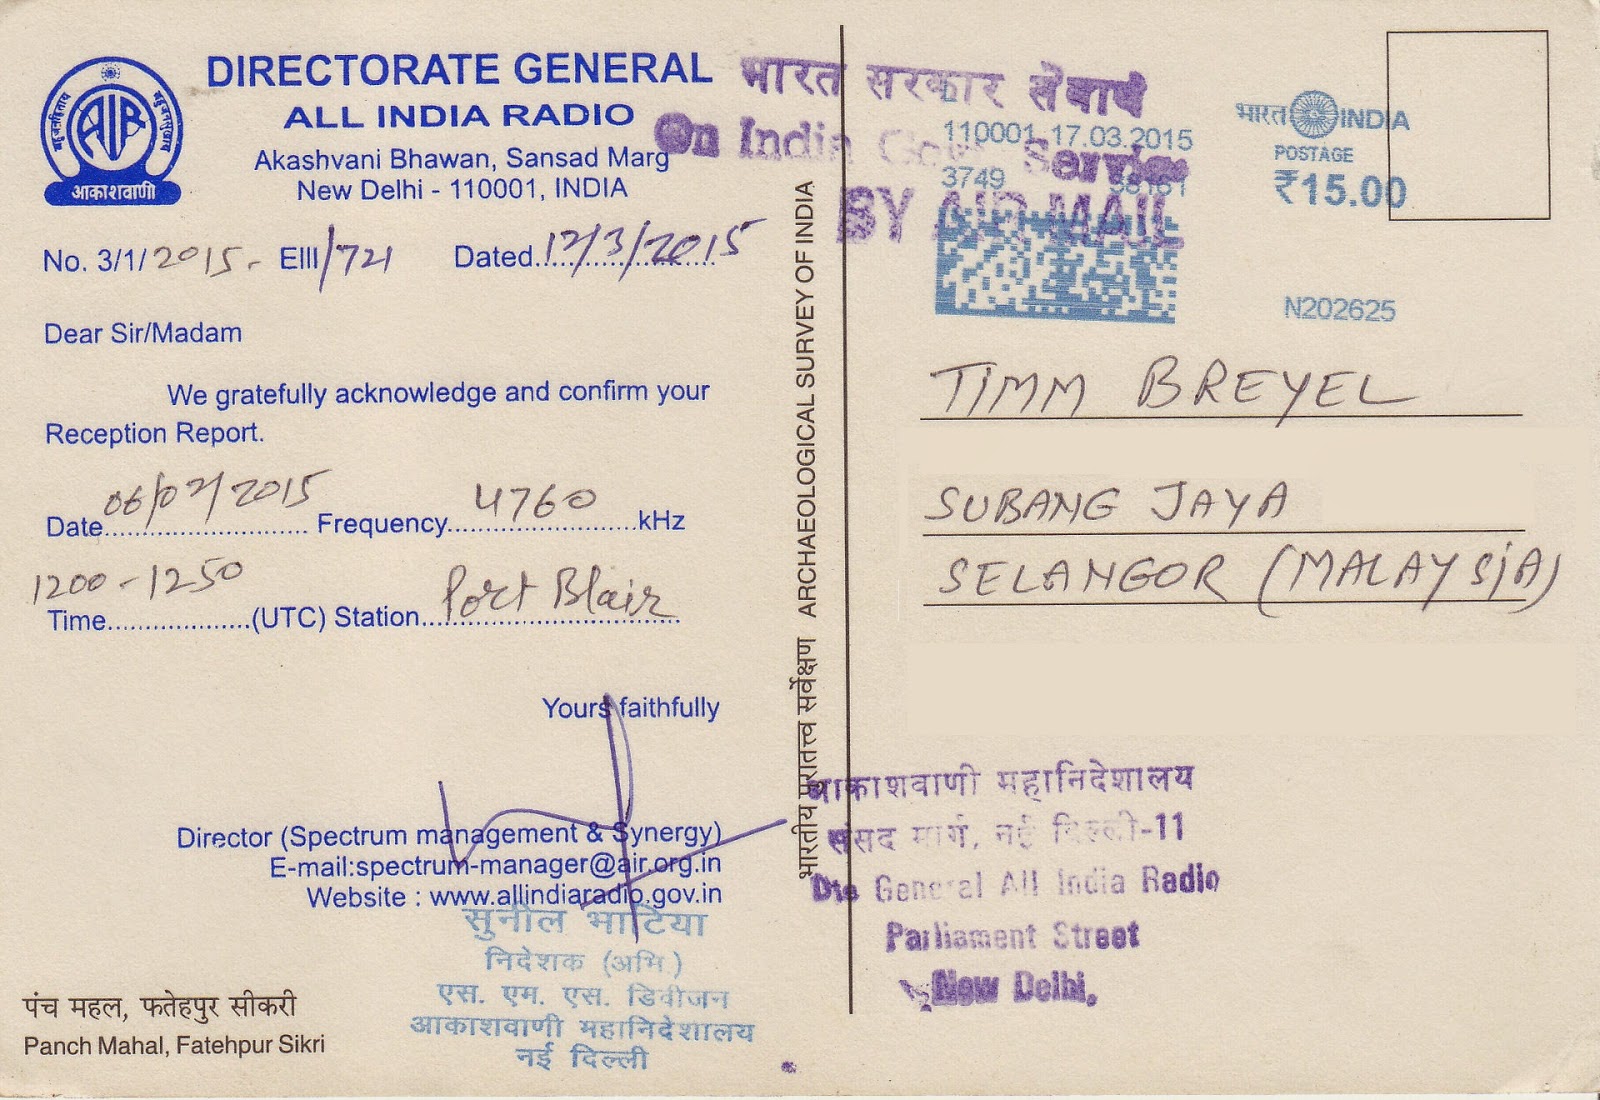 बहुजनहिताय बहुजनसुखाय
AIR
आकाशवाणी
DIRECTORATE GENERAL
ALL INDIA RADIO
Akashvani Bhawan, Sansad Marg
New Delhi - 110001, INDIA
No. 3/1/2015- EIII/721 Dated 12/3/2015
Dear Sir/Madam
We gratefully acknowledge and confirm your
Reception Report.
Date 06/02/2015 Frequency 4760 kHz
Time 1200-1250 (UTC) Station Port Blair
Yours faithfully
Director (Spectrum management & Synergy)
E-mail:spectrum-manager@air.org.in
Website : www.allindiaradio.gov.in
सुनील भाटिया
निदेशक (अभि.)
एस. एम. एस. डिवीजन
आकाशवाणी महानिदेशालय
नई दिल्ली
पंच महल, फतेहपुर सीकरी
Panch Mahal, Fatehpur Sikri
भारतीय पुरातत्त्व सर्वेक्षण ARCHAEOLOGICAL SURVEY OF INDIA
भारत सरकार सेवार्थ
On India Govt Service
BY AIR MAIL
110001 17.03.2015
3749
भारत INDIA
POSTAGE
₹15.00
N202625
TIMM BREYEL
SUBANG JAYA
SELANGOR (MALAYSiA)
आकाशवाणी महानिदेशालय
संसद मार्ग, नई दिल्ली-11
Dte General All India Radio
Parliament Street
New Delhi.